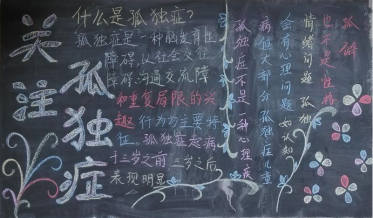 关注
孤独症
什么是孤独症?
孤独症是一种脑发育性
障碍,以社会交往
障碍,沟通交流障
和重复局限的兴
趣行为为主要特
征。孤独症起病
于三岁之前,三岁之后
表现明显
孤僻
也不是性格
情绪问题,孤独
会有心理问题,如认知
病但大部分孤独症儿童
孤独症不是一种心理疾